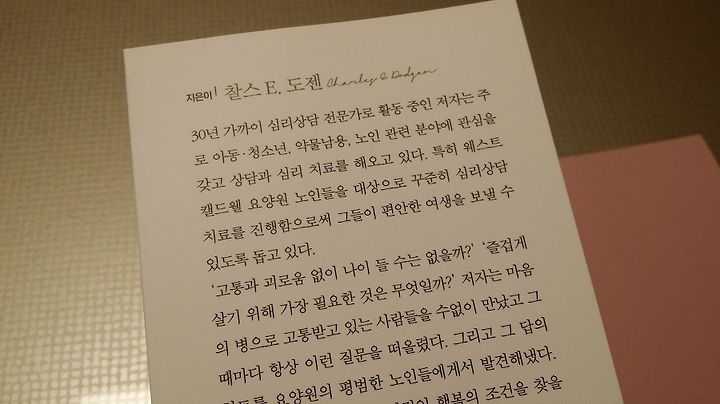 지은이 | 찰스 E. 도젠 Charles E Dodgen
30년 가까이 심리상담 전문가로 활동 중인 저자는 주
로 아동·청소년, 약물남용, 노인 관련 분야에 관심을
갖고 상담과 심리 치료를 해오고 있다. 특히 웨스트
캘드웰 요양원 노인들을 대상으로 꾸준히 심리상담
치료를 진행함으로써 그들이 편안한 여생을 보낼 수
있도록 돕고 있다.
'고통과 괴로움 없이 나이 들 수는 없을까?' '즐겁게
살기 위해 가장 필요한 것은 무엇일까?' 저자는 마음
의 병으로 고통받고 있는 사람들을 수없이 만났고 그
때마다 항상 이런 질문을 떠올렸다. 그리고 그 답의
힌트를 요양원의 평범한 노인들에게서 발견해냈다.
행복의 조건을 찾을